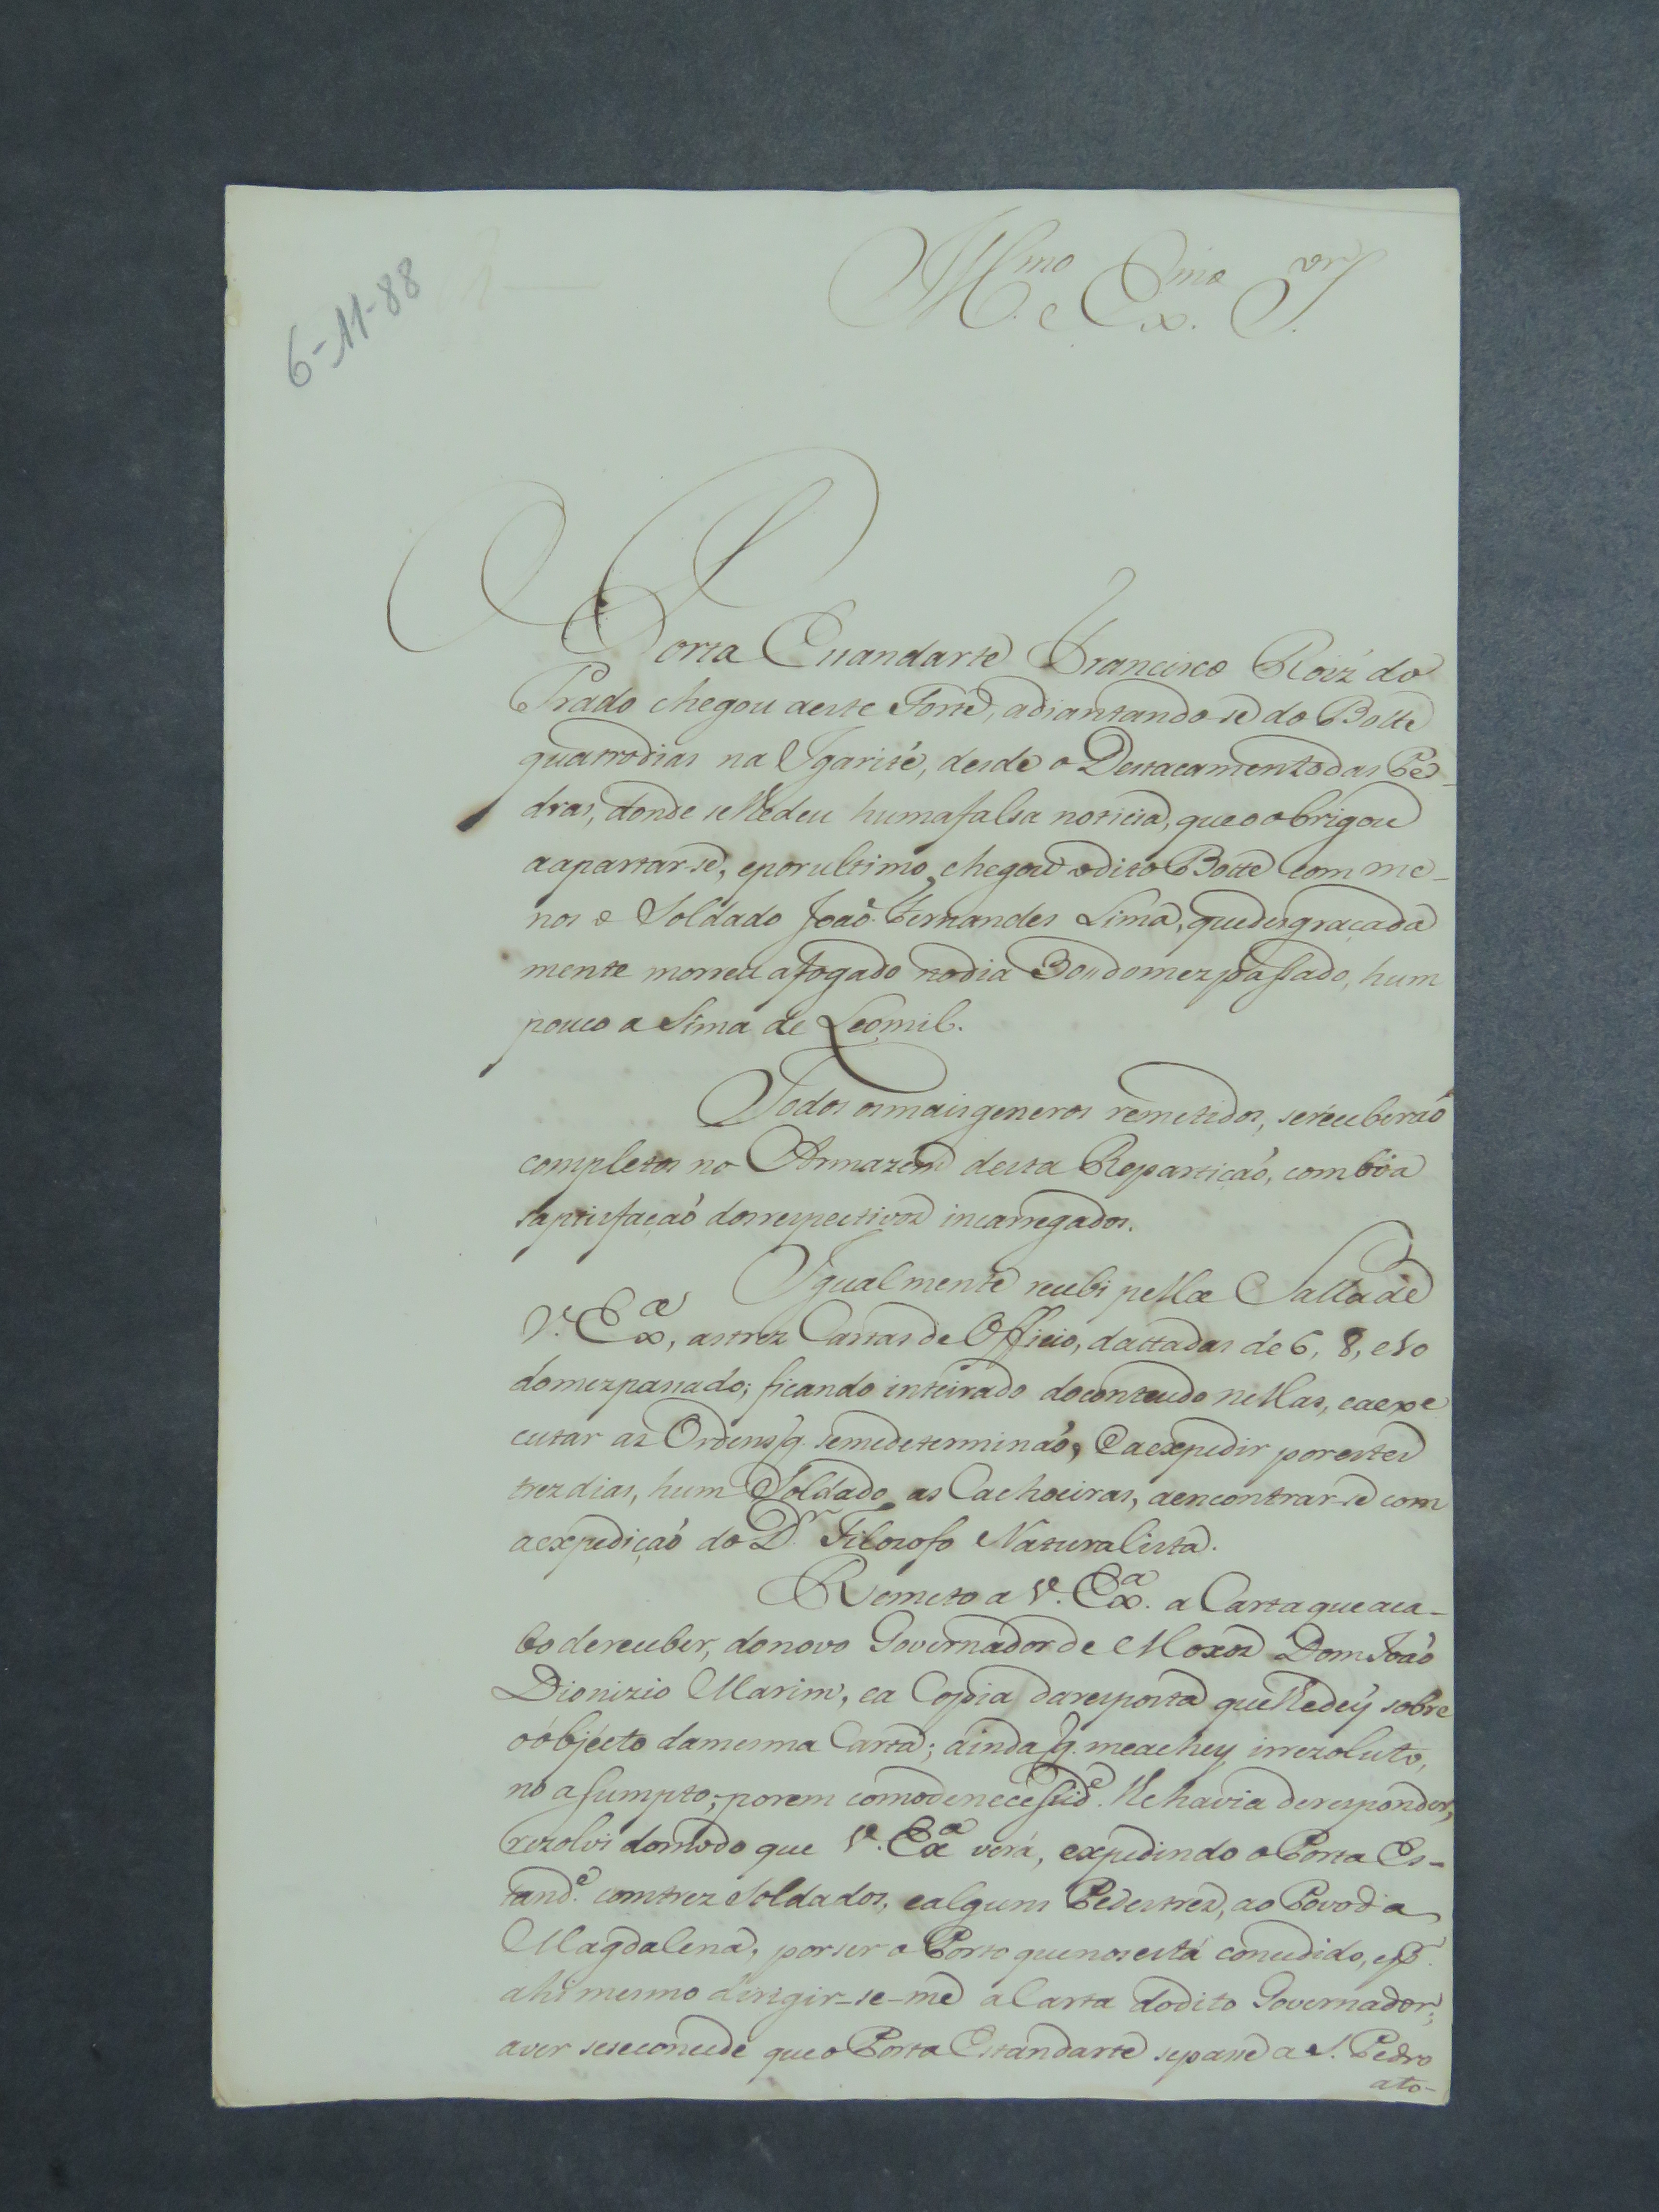 6-11-88
Ill.mo e Ex.mo S.or
O Porta Estandarte Francisco Roiz' do
Prado chegou aeste Forte, adiantando-se do Botte
quatrodias na Igarité, desde o Destacamentodas Pe-
dras, donde selhedeu humafalsa noticia, queoobrigou
aapartar-se, eporultimo, chegou odito Botte com me-
nos o Soldado João Fernandes Lima, quedesgraçada
mente morreu afogado nodia 30,, domezpassado, hum
pouco a Sima de Leomil.
Todos osmaisgeneros remetidos, sereceberão
completos no Armazem desta Repartição, com bôa
saptisfação dosrespectivos incarregados.
Igualmente recebi pella Sallade
V. Ex.a, astrez Cartas de Officio, dattadas de 6, 8, e 10
domezpassado; ficando inteirado doconteudo nellas, eaexe
cutar as Ordens q. semedeterminão, Eaexpedir porestes
trezdias, hum Soldado as Cachoeiras, aencontrar-se com
aexpedição do D.r Filosofo Naturalista.
Remeto a V. Ex.a a Carta queaca-
bodereceber, donovo Governador de Moxos Dom João
Dionizio Marim, ea Copia daresposta quelhedey sobre
oobjécto damesma Carta; ainda q. meachey irrezoluto,
no assumpto; porem comodenecessid.e lhe havia deresponder,
rezolvi domodo que V. Ex.a verá, expedindo o Porta Es-
tand.e comtrez Soldados, ealguns Pedestres, ao Povo da
Magdalena, porser o Porto quenosestá concedido, ep.r
ahi mesmo dirigir-se-me a Carta dodito Governador;
aver seseconcede queo Porta Estandarte sepasse a S. Pedro
ato-